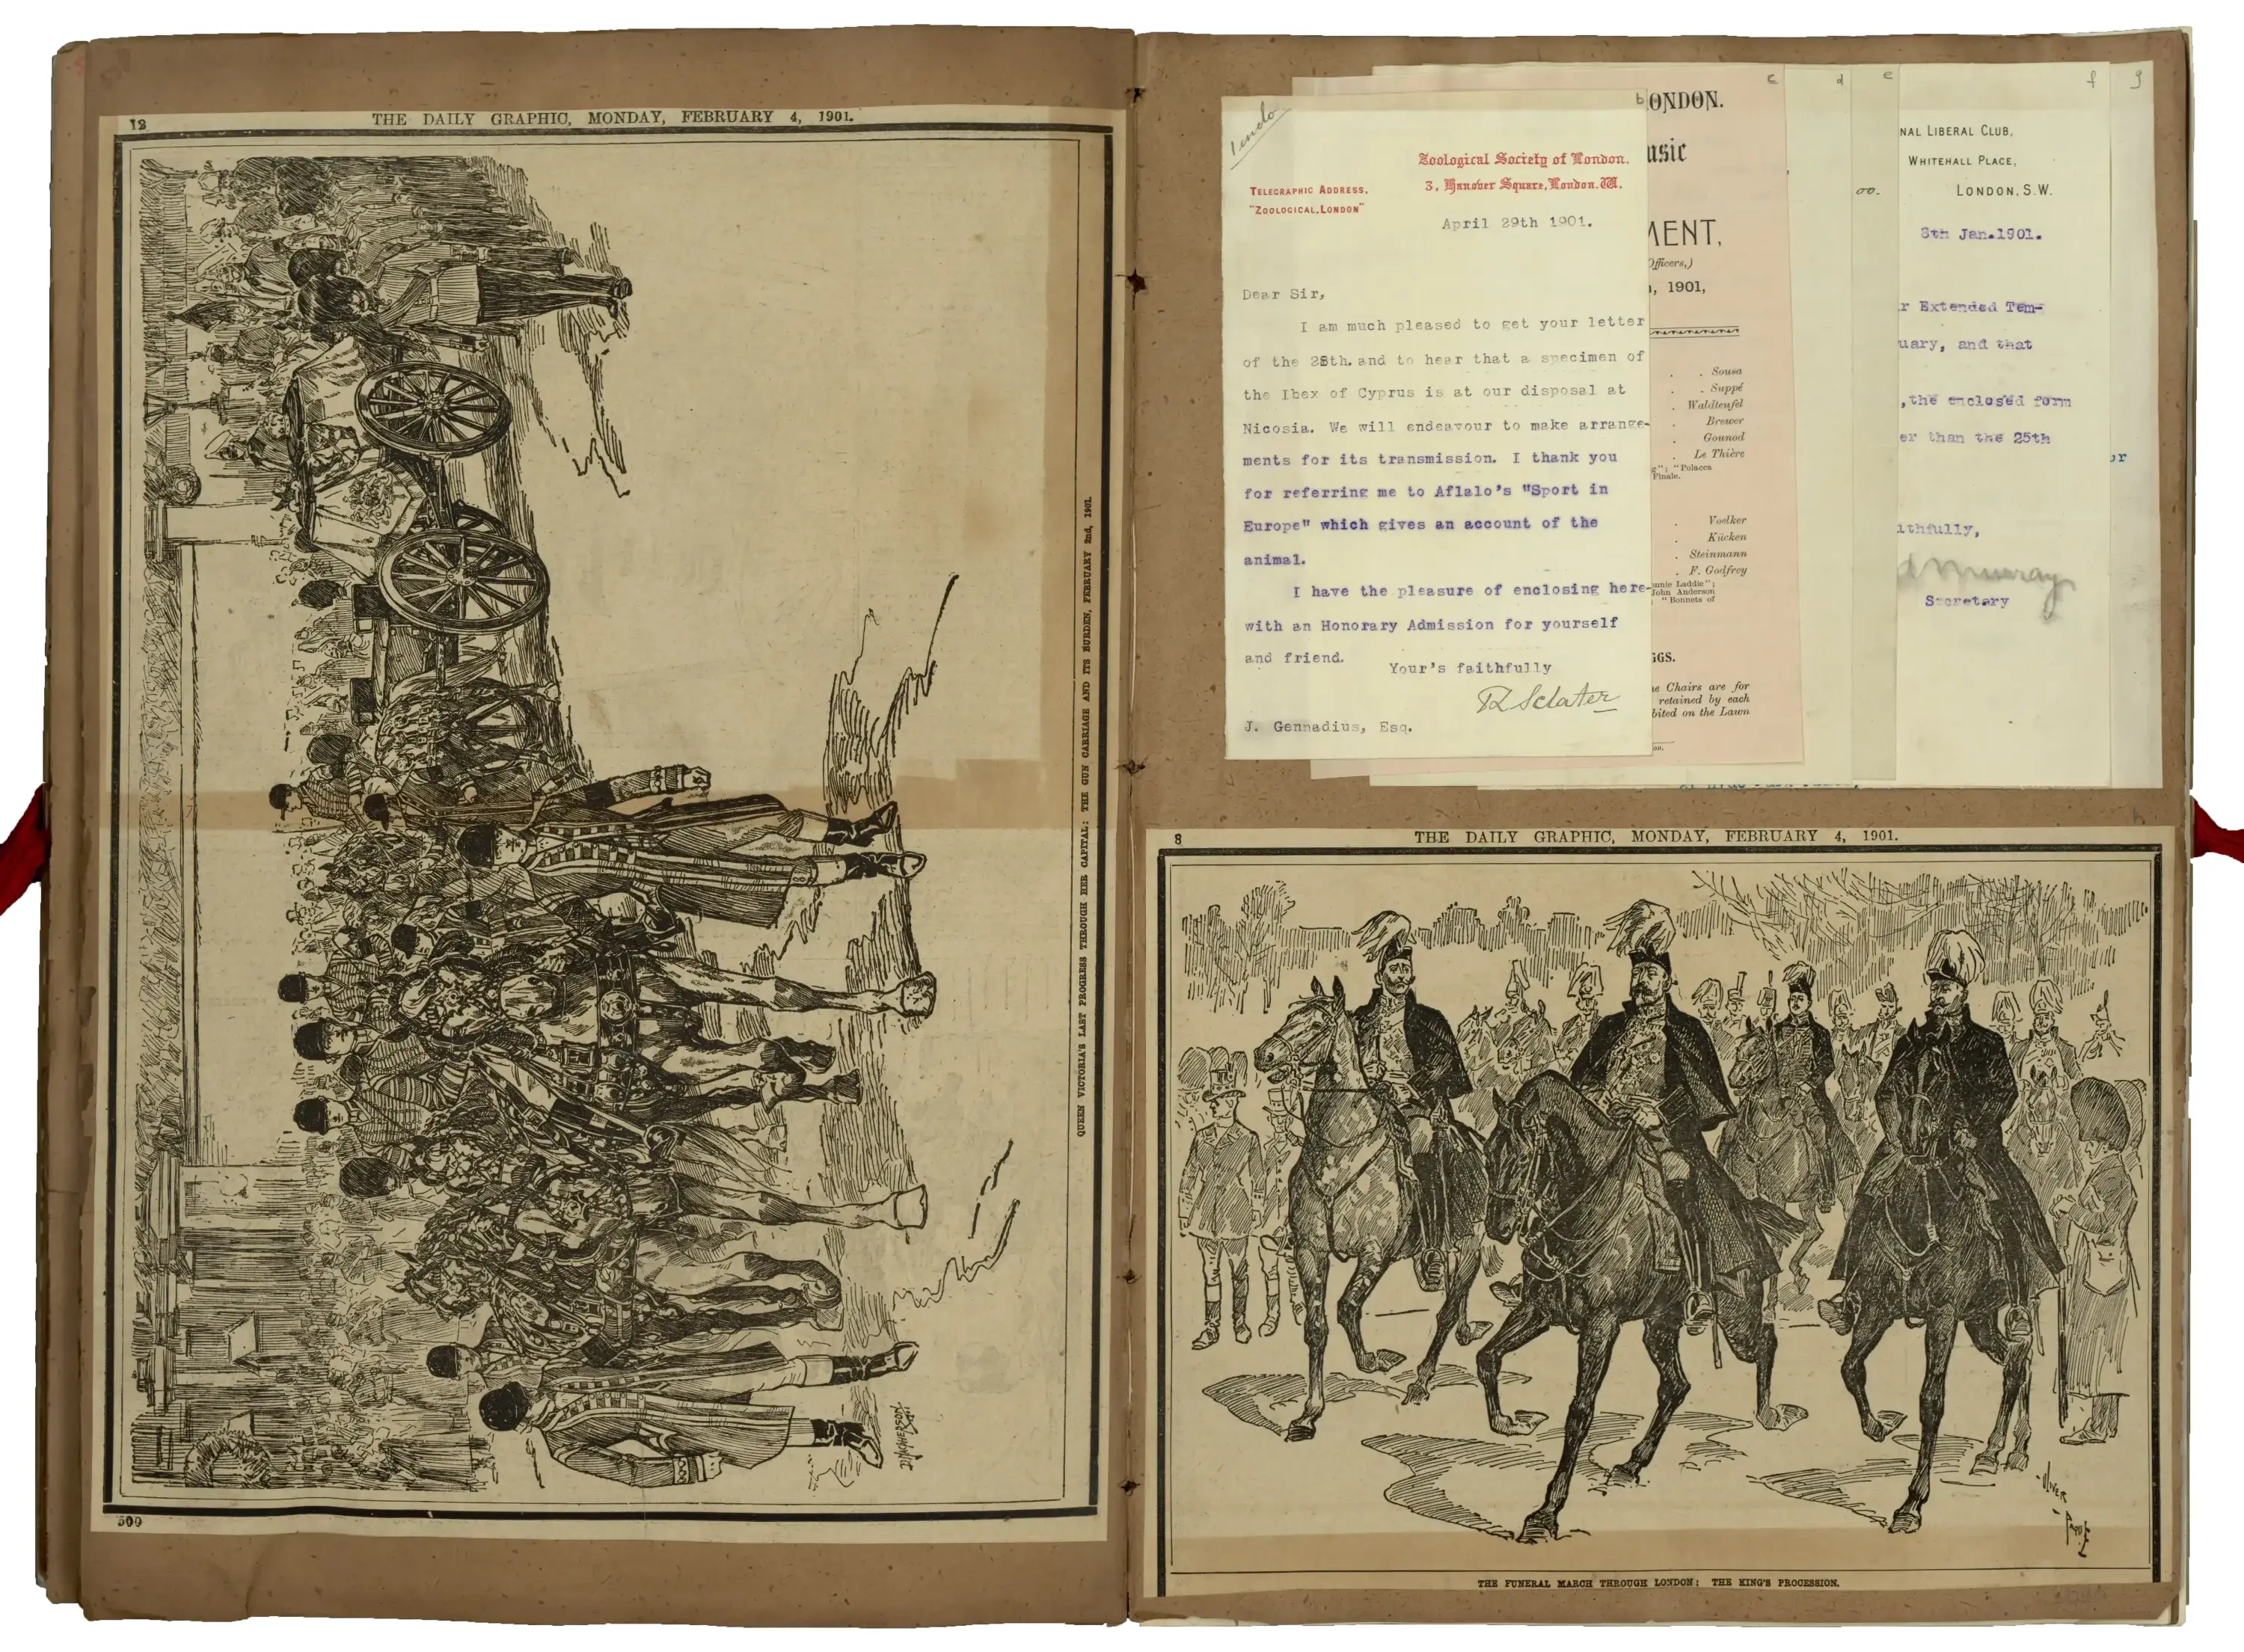 12
THE DAILY GRAPHIC, MONDAY, FEBRUARY 4, 1901.
QUEEN VICTORIA'S LAST PROGRESS THROUGH HER CAPITAL: THE GUN CARRIAGE AND ITS BURDEN, FEBRUARY 2nd, 1901.
D. MACPHERSON
500
1 endo
b
Zoological Society of London.
3, Hanover Square, London. W.
TELEGRAPHIC ADDRESS,
"ZOOLOGICAL, LONDON"
April 29th 1901.
Dear Sir,
I am much pleased to get your letter
of the 28th. and to hear that a specimen of
the Ibex of Cyprus is at our disposal at
Nicosia. We will endeavour to make arrange-
ments for its transmission. I thank you
for referring me to Aflalo's "Sport in
Europe" which gives an account of the
animal.
I have the pleasure of enclosing here-
with an Honorary Admission for yourself
and friend.
Your's faithfully
PL Sclater
J. Gennadius, Esq.
c
ONDON.
usic
MENT,
Officers,)
, 1901,
. . Sousa
. . Suppé
. Waldteufel
. Brewer
. Gounod
. Le Thière
g"; "Polacca
Finale.
. Voelker
. Kücken
. Steinmann
. F. Godfrey
nnie Laddie";
John Anderson
"Bonnets of
GGS.
e Chairs are for
retained by each
bited on the Lawn
d
e
oo.
f
NAL LIBERAL CLUB,
WHITEHALL PLACE,
LONDON, S.W.
8th Jan. 1901.
r Extended Tem-
uary, and that
,the enclosed form
er than the 25th
ithfully,
Murray
Secretary
g
or
h
8
THE DAILY GRAPHIC, MONDAY, FEBRUARY 4, 1901.
OLIVER
PAQUE
THE FUNERAL MARCH THROUGH LONDON: THE KING'S PROCESSION.